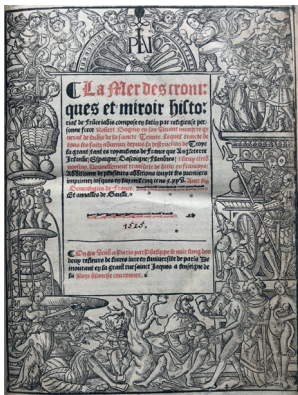 La Mer des croni
ques et miroir histo
rial de France iadis compose en latin par religieuse per
sonne frere Robert Gaguin en son vivant ministre ge
neral de
tous les faitz advenus depuis la destruction de Troye
la grant tant es royaulmes de France que Angleterre
Irlande, Espaigne, Gascoigne, Flandres,
Nouvellement translate de latin en francoys
Additionne de plusieurs additions iusques
imprimer
de France.
Et annalles de Gaulle.
1525.
On les vend a Paris par Philippe le noir lung des
deux relieurs de livres iure en luniversite de paris De
mourant en la grant rue sainct Jaques a lenseigne de
la Rose blanche couronnee.